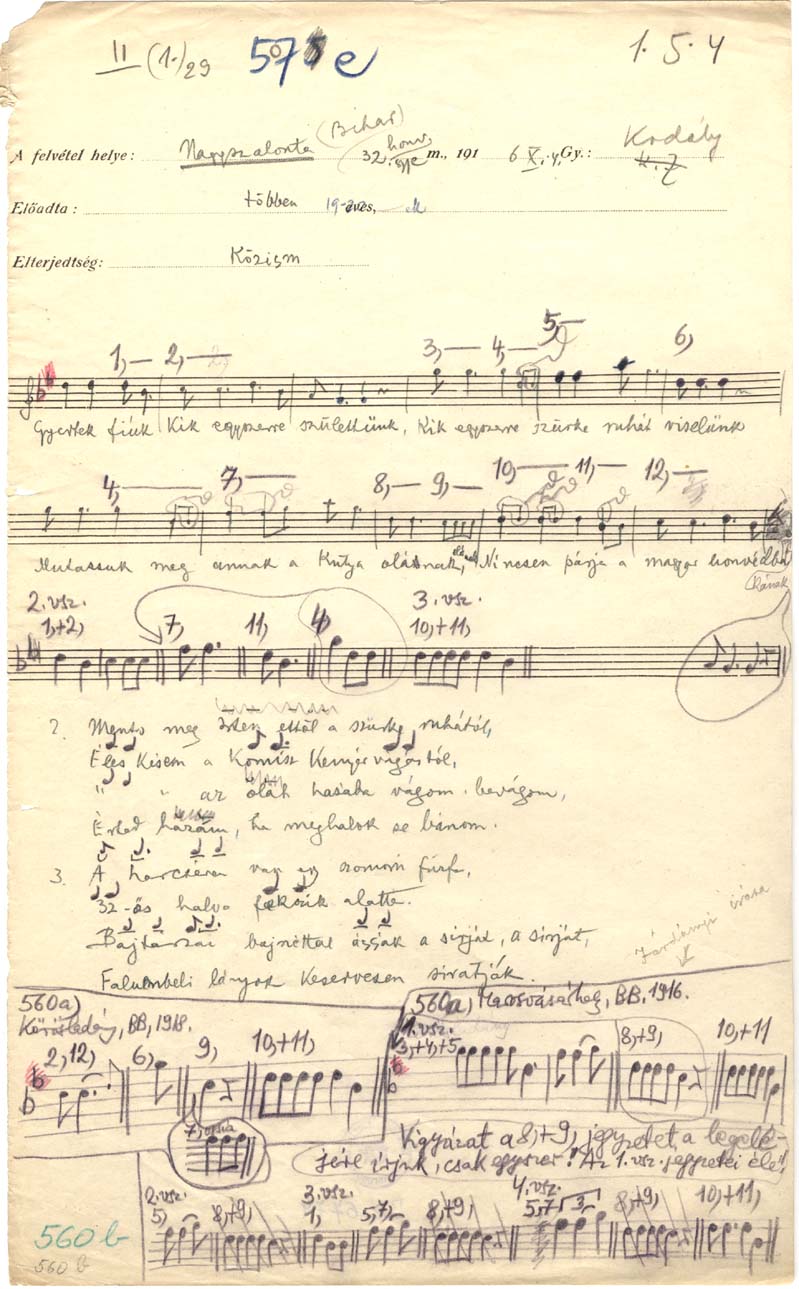 II (1.)29 1. 5. 4
(Bihar)
A felvétel helye: Nagyszalonta 32. honv. m., 191 6 X. 4. Gy.: Kodály
Előadta: többen 19- éves,
Elterjedtség: Közism
1, 2, 3, 4, 5, 6,
Gyertek fiúk Kik egyszerre születtünk, Kik egyszerre szürke ruhát viselünk
4, 7, 8, 9, 10, 11, 12,
Mutassuk meg annak a Kutya oláhnak, Nincsen párja a magyar honvédba
2. vsz. 3. vsz.
1,+2, 7, 11, 4, 10,+11,
2. Ments meg Isten ettől a szürke ruhától,
Éles késem a Komisz Kenyérvágástól,
" " az oláh hasába vágom. bevágom,
Érted hazám, ha meghalok se bánom.
3. A harctéren van egy szomorú fűzfa,
32-ős halva fekszik alatta.
Bajtársai bajnéttal ássák a sirját, a sirját,
Falumbeli lányok keservesen siratják.
Járdányi irása
560a) Körösladány, BB, 1918.
2, 12, 6, 9, 10,+11,
7,
560a) Marosvásárhely, BB, 1916.
1. vsz.
3,+4,+5 8,+9, 10,+11
Vigyázat a 8,+9, jegyzetet a legelé-
jére írjuk, csak egyszer! Az 1. vsz. jegyzetei élé!
2. vsz. 3. vsz. 4. vsz.
5, 8,+9, 1, 5,7, 8,+9, 5,7 3 8,+9, 10,+11,
560 b
560 b